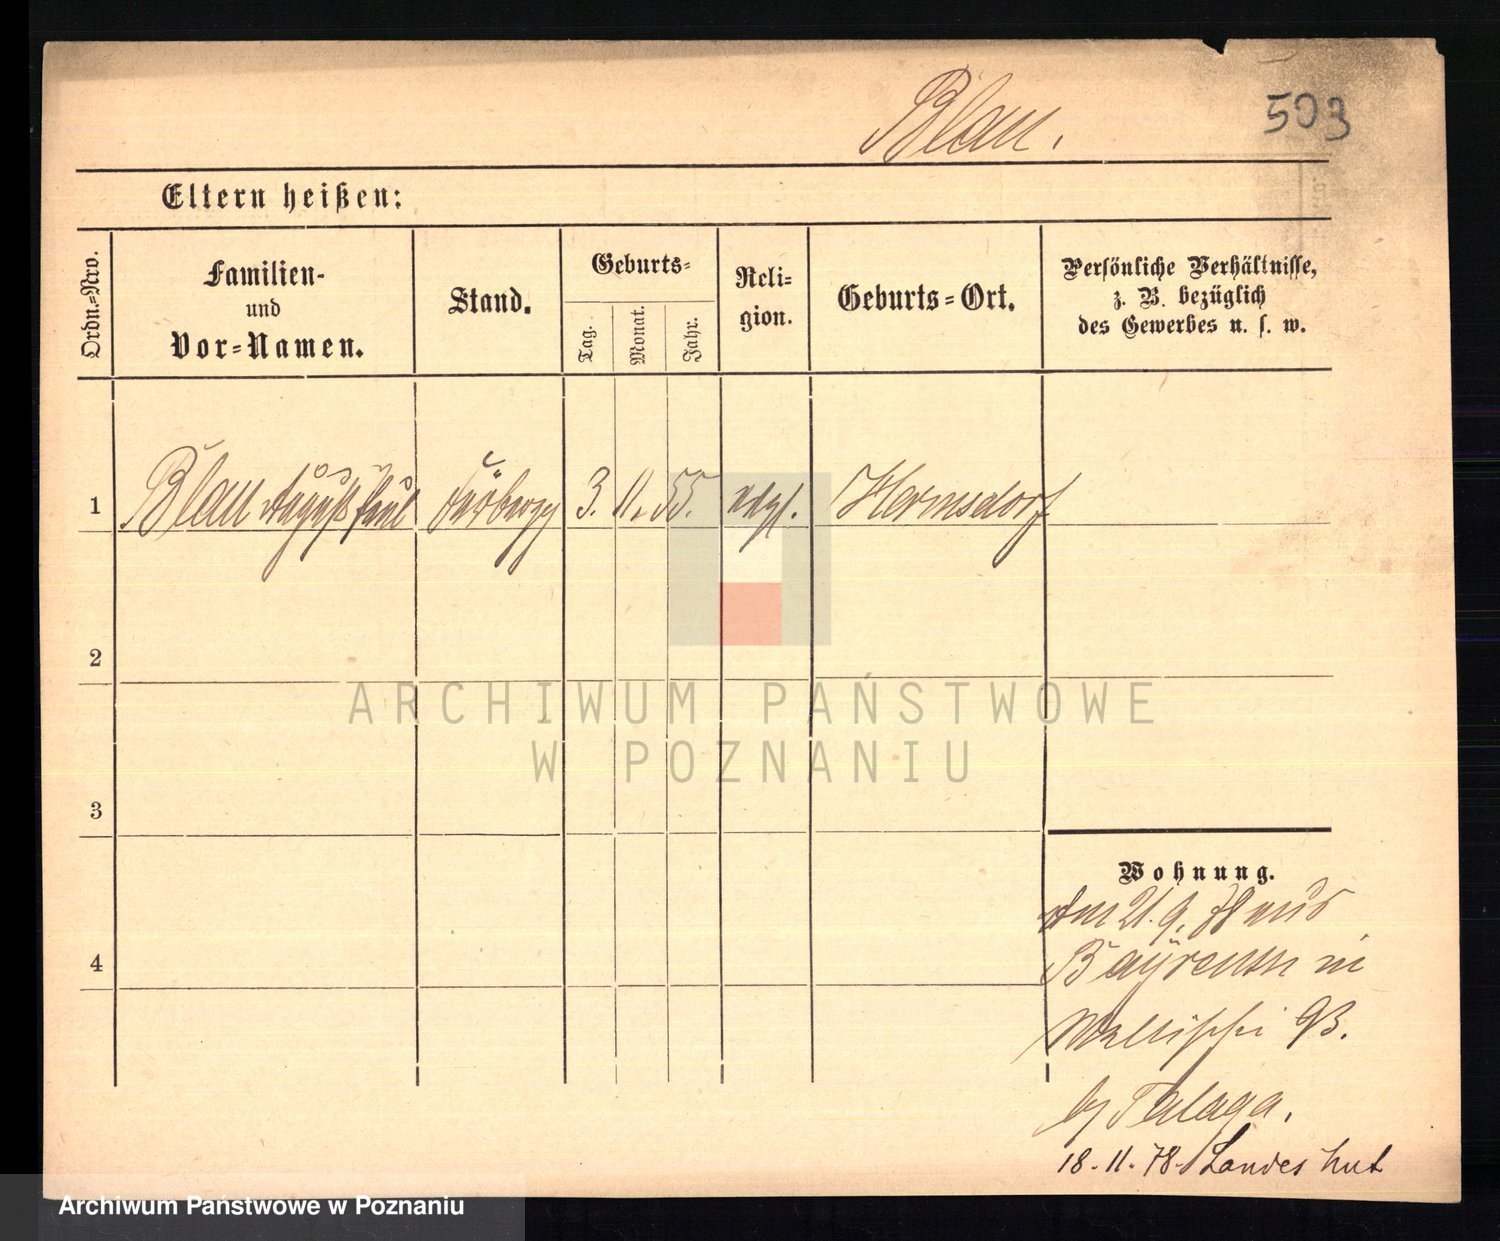 Blau.
503
Eltern heißen:
Ordn.-Nro.
Familien-
und
Vor-Namen.
Stand.
Geburts-
Tag.
Monat.
Jahr.
Reli-
gion.
Geburts-Ort.
Persönliche Verhältnisse,
z. B. bezüglich
des Gewerbes u. s. w.
1 Blau August Paul 3. 11. 55. Hermsdorf
2
3
4
Wohnung.
21. 9. 78 aus
Bayreuth in
93.
by Talaga.
18. 11. 78. Landeshut
ARCHIWUM PAŃSTWOWE
W POZNANIU
Archiwum Państwowe w Poznaniu